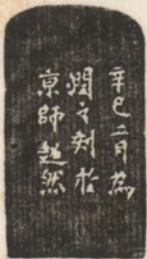 辛巳二月為
閏之刻於
京師超然